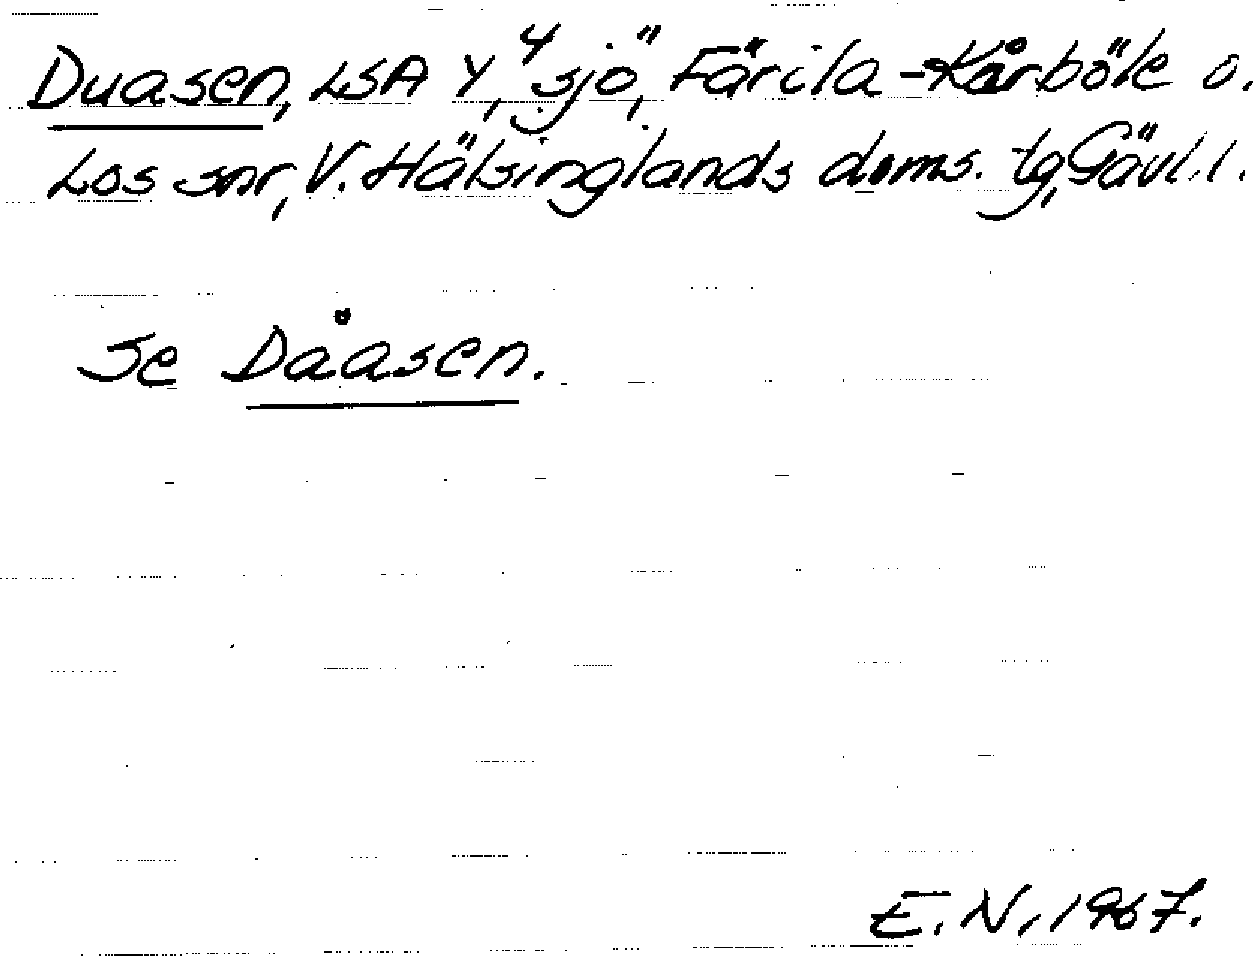 Duasen, LSA Y, "sjö", Färila-Kårböle o.
Los snr, V. Hälsinglands doms. tg, Gävl. l.
Se Dåasen.
E. N. 1967.